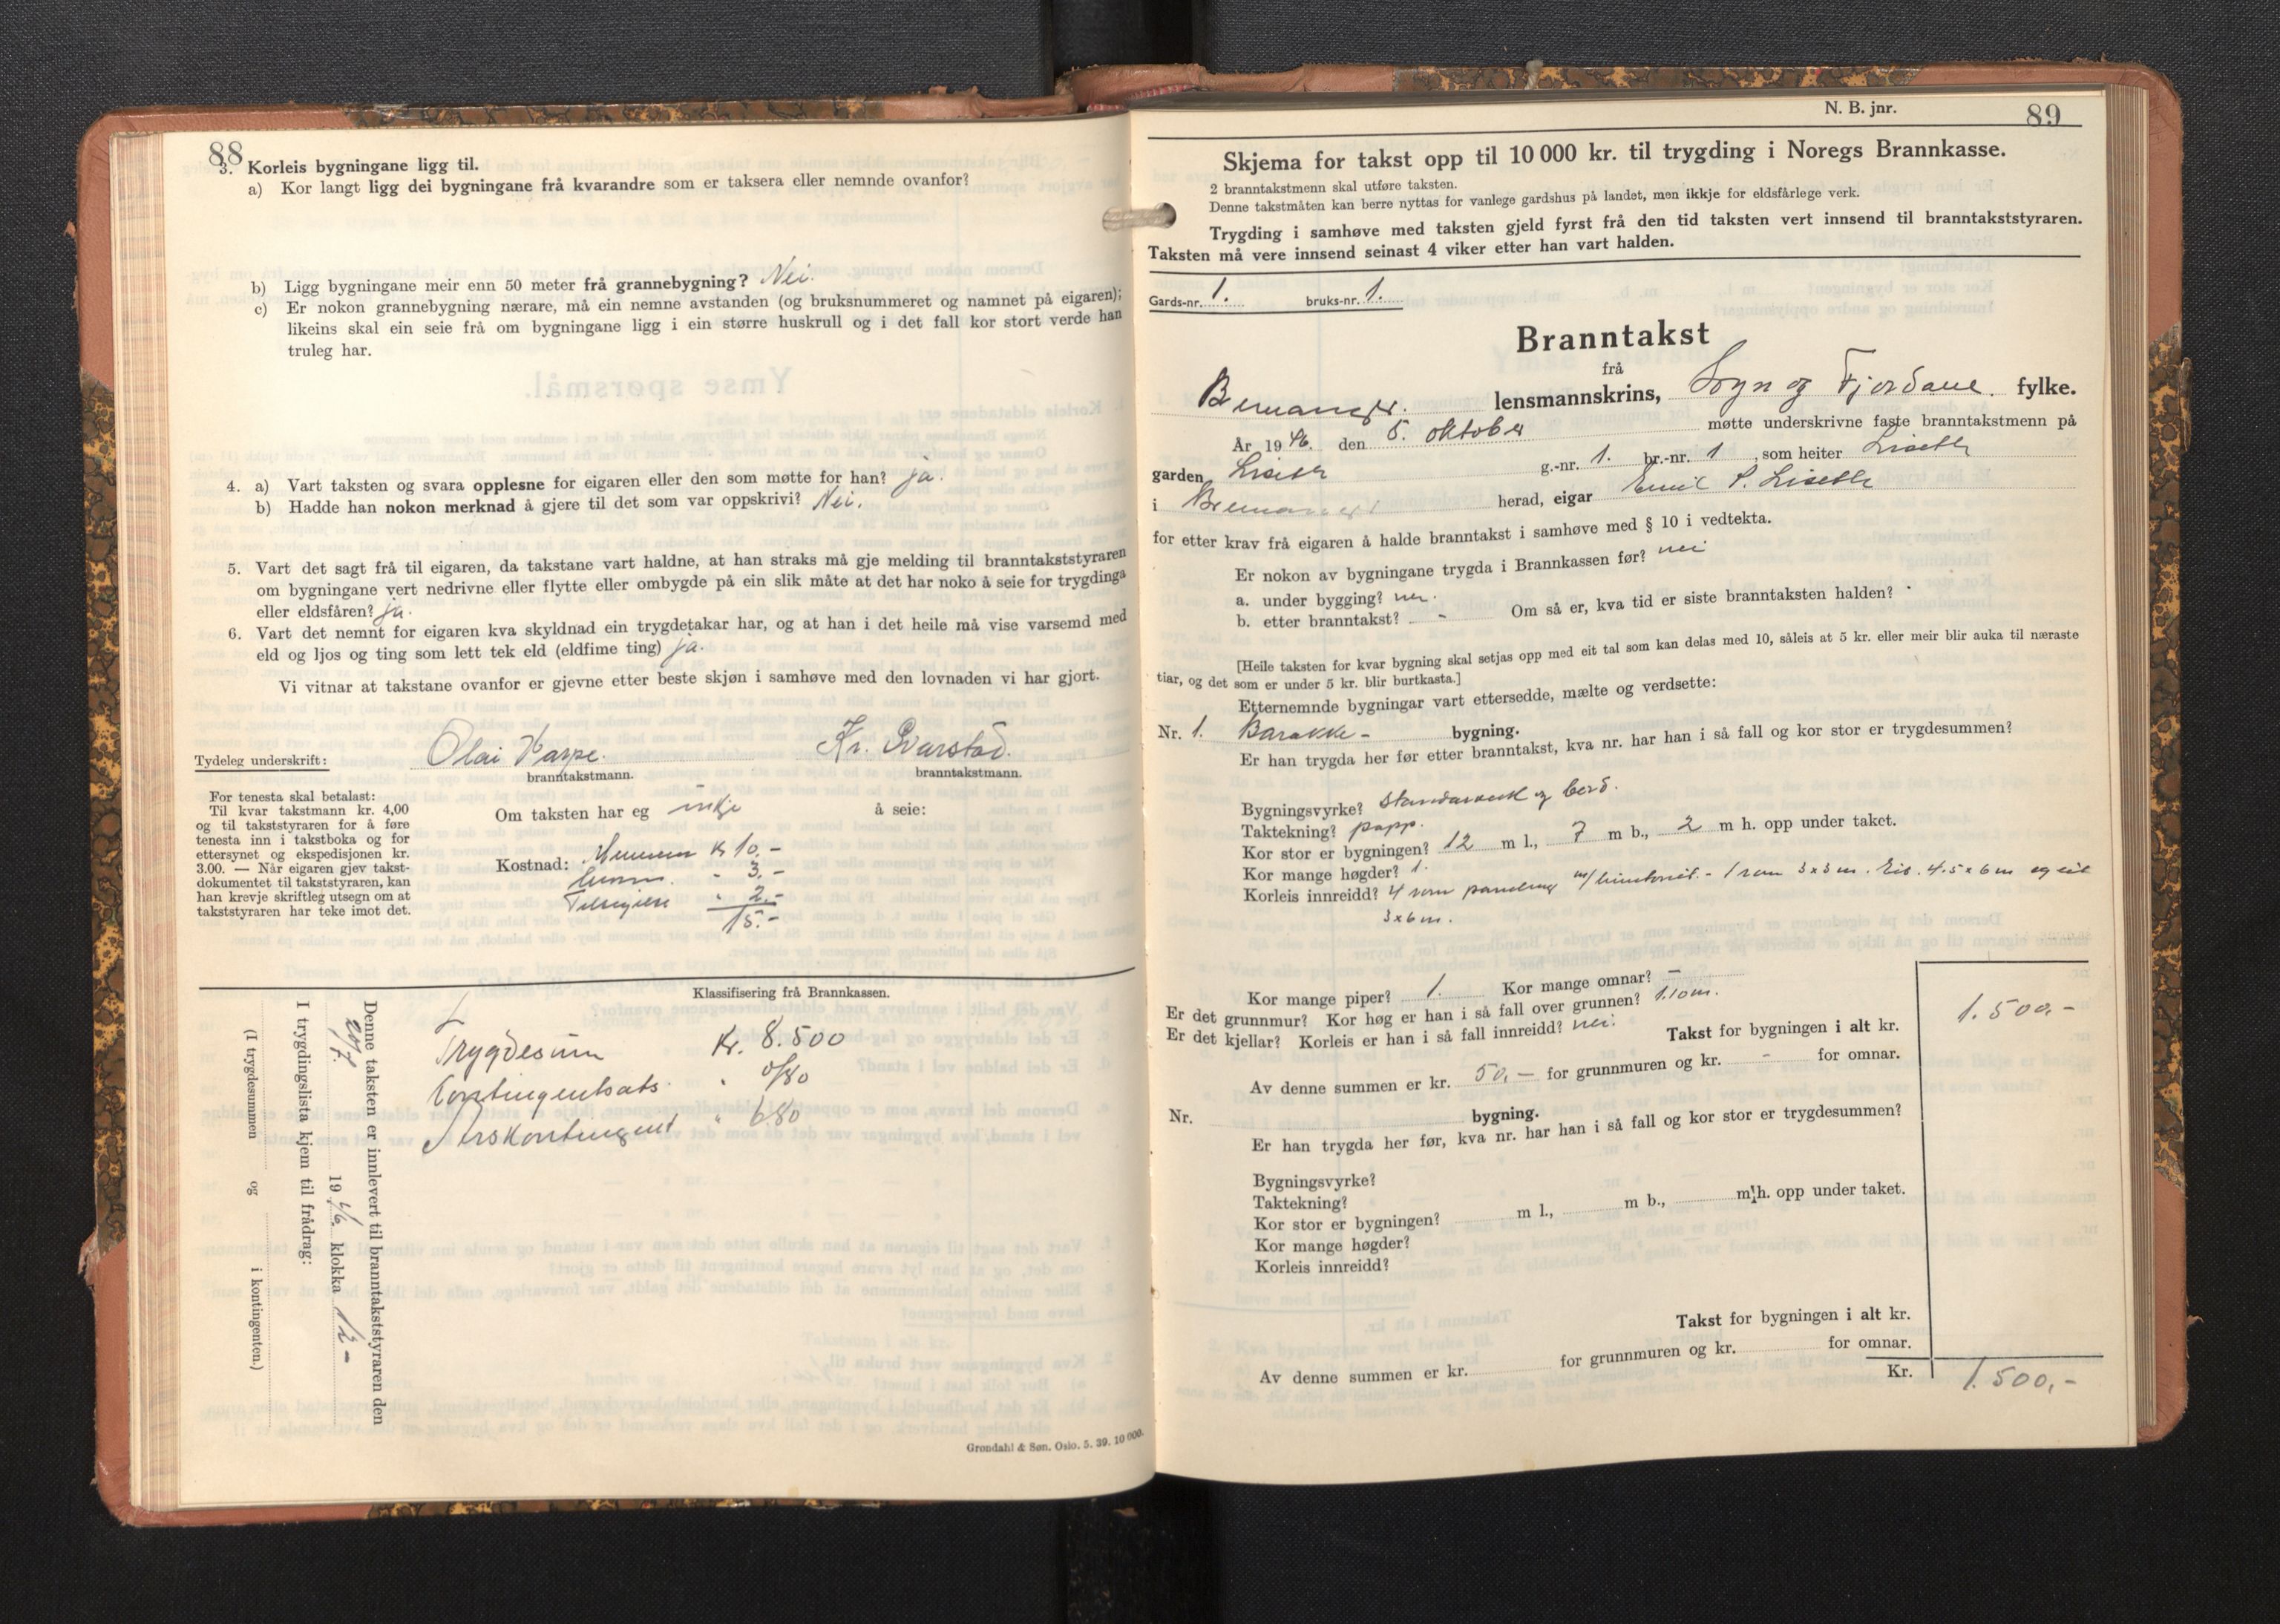 88
3. Korleis bygningane ligg til.
a) Kor langt ligg dei bygningane frå kvarandre som er taksera eller nemnde ovanfor?
b) Ligg bygningane meir enn 50 meter frå grannebygning? Nei.
c) Er nokon grannebygning nærare, må ein nemne avstanden (og bruksnummeret og namnet på eigaren);
likeins skal ein seie frå om bygningane ligg i ein større huskrull og i det fall kor stort verde han
truleg har.
4. a) Vart taksten og svara opplesne for eigaren eller den som møtte for han? ja.
b) Hadde han nokon merknad å gjere til det som var oppskrivi? Nei.
5. Vart det sagt frå til eigaren, da takstane vart haldne, at han straks må gje melding til branntakststyraren
om bygningane vert nedrivne eller flytte eller ombygde på ein slik måte at det har noko å seie for trygdinga
eller eldsfåren? ja.
6. Vart det nemnt for eigaren kva skyldnad ein trygdetakar har, og at han i det heile må vise varsemd med
eld og ljos og ting som lett tek eld (eldfime ting) ja.
Vi vitnar at takstane ovanfor er gjevne etter beste skjøn i samhøve med den lovnaden vi har gjort.
Tydeleg underskrift: Olai Varpe. Kr. Kvarstad.
branntakstmann. branntakstmann.
For tenesta skal betalast:
Til kvar takstmann kr. 4,00
og til takststyraren for å føre
tenesta inn i takstboka og for
ettersynet og ekspedisjonen kr.
3.00. — Når eigaren gjev takst-
dokumentet til takststyraren, kan
han krevje skriftleg utsegn om at
takststyraren har teke imot det.
Om taksten har eg inkje å seie:
Kostnad: Mennene Kr 10.-
" 3.-
" 2.-
15.-
Klassifisering frå Brannkassen.
Trygdesum Kr. 8.500
Kontingentsats " 0/80
Årskontingent " 6.80
Denne taksten er innlevert til branntakststyraren den
20/7. 1946. klokka 12-
I trygdingslista kjem til frådrag:
(I trygdesummen og i kontingenten.)
Grøndahl & Søn. Oslo. 5. 39. 10 000.
N. B. jnr. 89
Skjema for takst opp til 10 000 kr. til trygding i Noregs Brannkasse.
2 branntakstmenn skal utføre taksten.
Denne takstmåten kan berre nyttas for vanlege gardshus på landet, men ikkje for eldsfårlege verk.
Trygding i samhøve med taksten gjeld fyrst frå den tid taksten vert innsend til branntakststyraren.
Taksten må vere innsend seinast 4 viker etter han vart halden.
Gards-nr. 1. bruks-nr. 1.
Branntakst
frå
Bremanger. lensmannskrins, Sogn og Fjordane. fylke.
År 1946. den 5. oktober møtte underskrivne faste branntakstmenn på
garden Liseth g.-nr. 1. br.-nr. 1, som heiter Liseth
i Bremanger herad, eigar Emil P. Liseth
for etter krav frå eigaren å halde branntakst i samhøve med § 10 i vedtekta.
Er nokon av bygningane trygda i Brannkassen før? nei
a. under bygging? nei.
b. etter branntakst? - Om så er, kva tid er siste branntaksten halden?
[Heile taksten for kvar bygning skal setjas opp med eit tal som kan delas med 10, såleis at 5 kr. eller meir blir auka til næraste
tiar, og det som er under 5 kr. blir burtkasta.]
Etternemnde bygningar vart ettersedde, mælte og verdsette:
Nr. 1. Barakke- bygning.
Er han trygda her før etter branntakst, kva nr. har han i så fall og kor stor er trygdesummen?
Bygningsvyrke? og bord.
Taktekning? papp.
Kor stor er bygningen? 12 m l., 7 m b., 2 m h. opp under taket.
Kor mange høgder? 1.
Korleis innreidd? 4 rom paneling - 1 rom 3x3 m. Eit 4.5 x 6 m og eit
3x6 m.
Kor mange piper? 1. Kor mange omnar? —
Er det grunnmur? Kor høg er han i så fall over grunnen? 1.10 m.
Er det kjellar? Korleis er han i så fall innreidd? nei.
Takst for bygningen i alt kr. 1.500,-
Av denne summen er kr. 50,- for grunnmuren og kr. - for omnar.
Nr. bygning.
Er han trygda her før, kva nr. har han i så fall og kor stor er trygdesummen?
Bygningsvyrke?
Taktekning?
Kor stor er bygningen? m l., m b., m h. opp under taket.
Kor mange høgder?
Korleis innreidd?
Takst for bygningen i alt kr.
Av denne summen er kr. for grunnmuren og kr. for omnar.
Kr. 1.500,-